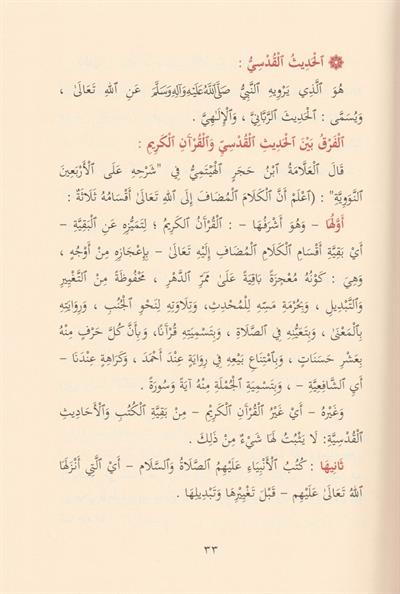 الْحَدِيثُ الْقُدْسِيُّ :
هُوَ الَّذِي يَرْوِيهِ النَّبِيُّ صَلَّىاللَّهُعَلَيْهِوَآلِهِوَسَلَّمَ عَنِ اللهِ تَعَالَىٰ ،
وَيُسَمَّى : الْحَدِيثَ الرَّبَّانِيَّ ، وَالْإِلَـٰهِيَّ .
الْفَرْقُ بَيْنَ الْحَدِيثِ الْقُدْسِيِّ وَالْقُرْآنِ الْكَرِيمِ :
قَالَ الْعَلَّامَةُ ابْنُ حَجَرٍ الْهَيْتَمِيُّ فِي "شَرْحِهِ عَلَى الْأَرْبَعِينَ
النَّوَوِيَّةِ" : (اعْلَمْ أَنَّ الْكَلَامَ الْمُضَافَ إِلَى اللهِ تَعَالَىٰ أَقْسَامُهُ ثَلَاثَةٌ :
أَوَّلُهَا – وَهُوَ أَشْرَفُهَا – : الْقُرْآنُ الْكَرِيمُ ؛ لِتَمَيُّزِهِ عَنِ الْبَقِيَّةِ –
أَيْ بَقِيَّةِ أَقْسَامِ الْكَلَامِ الْمُضَافِ إِلَيْهِ تَعَالَىٰ – بِإِعْجَازِهِ مِنْ أَوْجُهٍ ،
وَهِيَ : كَوْنُهُ مُعْجِزَةً بَاقِيَةً عَلَىٰ مَمَرِّ الدَّهْرِ ، مَحْفُوظَةً مِنَ التَّغْيِيرِ
وَالتَّبْدِيلِ ، وَبِحُرْمَةِ مَسِّهِ لِلْمُحْدِثِ، وَتِلَاوَتِهِ لِنَحْوِ الْجُنُبِ ، وَرِوَايَتِهِ
بِالْمَعْنَىٰ ، وَبِتَعَيُّنِهِ فِي الصَّلَاةِ ، وَبِتَسْمِيَتِهِ قُرْآنًا ، وَبِأَنَّ كُلَّ حَرْفٍ مِنْهُ
بِعَشْرِ حَسَنَاتٍ ، وَبِامْتِنَاعِ بَيْعِهِ فِي رِوَايَةٍ عِنْدَ أَحْمَدَ ، وَكَرَاهَةٍ عِنْدَنَا –
أَيِ الشَّافِعِيَّةِ – ، وَبِتَسْمِيَةِ الْجُمْلَةِ مِنْهُ آيَةً وَسُورَةً .
وَغَيْرُهُ – أَيْ غَيْرُ الْقُرْآنِ الْكَرِيمِ – مِنْ بَقِيَّةِ الْكُتُبِ وَالْأَحَادِيثِ
الْقُدْسِيَّةِ: لَا يَثْبُتُ لَهَا شَيْءٌ مِنْ ذَلِكَ .
ثَانِيهَا : كُتُبُ الْأَنْبِيَاءِ عَلَيْهِمُ الصَّلَاةُ وَالسَّلَام – أَيِ الَّتِي أَنْزَلَهَا
اللهُ تَعَالَىٰ عَلَيْهِم – قَبْلَ تَغْيِيرِهَا وَتَبْدِيلِهَا .
٣٣